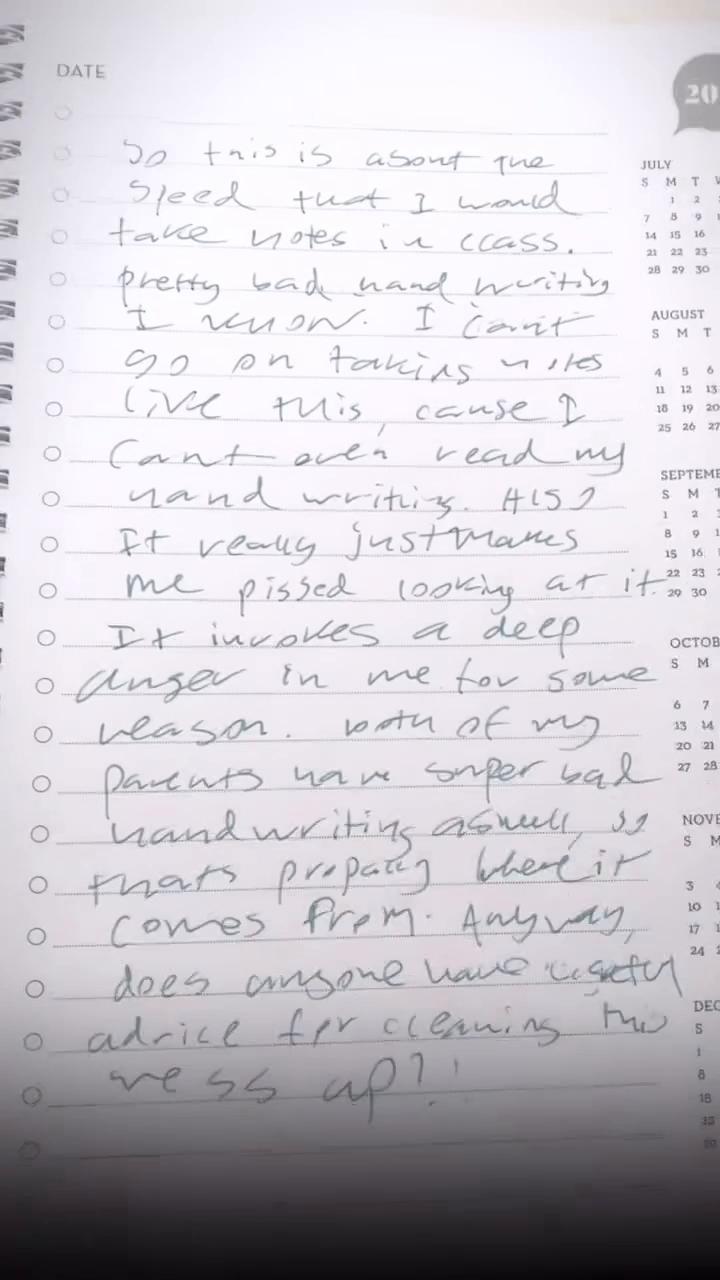 DATE
20
So this is about the
speed that I would
take notes in class.
pretty bad hand writing
I know. I can't
go on taking notes
like this, cause I
cant even read my
hand writing. Also
It really just makes
me pissed looking at it.
It invokes a deep
anger in me for some
reason. both of my
parents have super bad
handwriting aswell, so
thats propably where it
comes from. Anyway,
does anyone have useful
advice for cleaning this
mess up?!
JULY
S M T W
1 2
7 8 9 1
14 15 16
21 22 23
28 29 30
AUGUST
S M T
4 5 6
11 12 13
18 19 20
25 26 27
SEPTEMB
S M T
1 2
8 9 1
15 16 1
22 23 2
29 30
OCTOB
S M
6 7
13 14
20 21
27 28
NOVE
S M
3 4
10 1
17 1
24 2
DEC
S
1
8